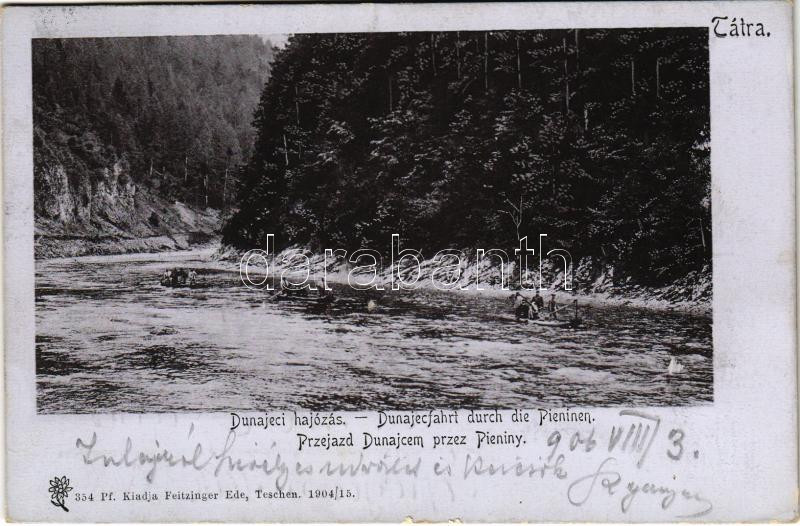 Tátra.
darabanth
Dunajeci hajózás. — Dunajecfahrt durch die Pieninen.
Przejazd Dunajcem przez Pieniny.
906 VIII/3.
és
354 Pf. Kiadja Feitzinger Ede, Teschen. 1904/15.